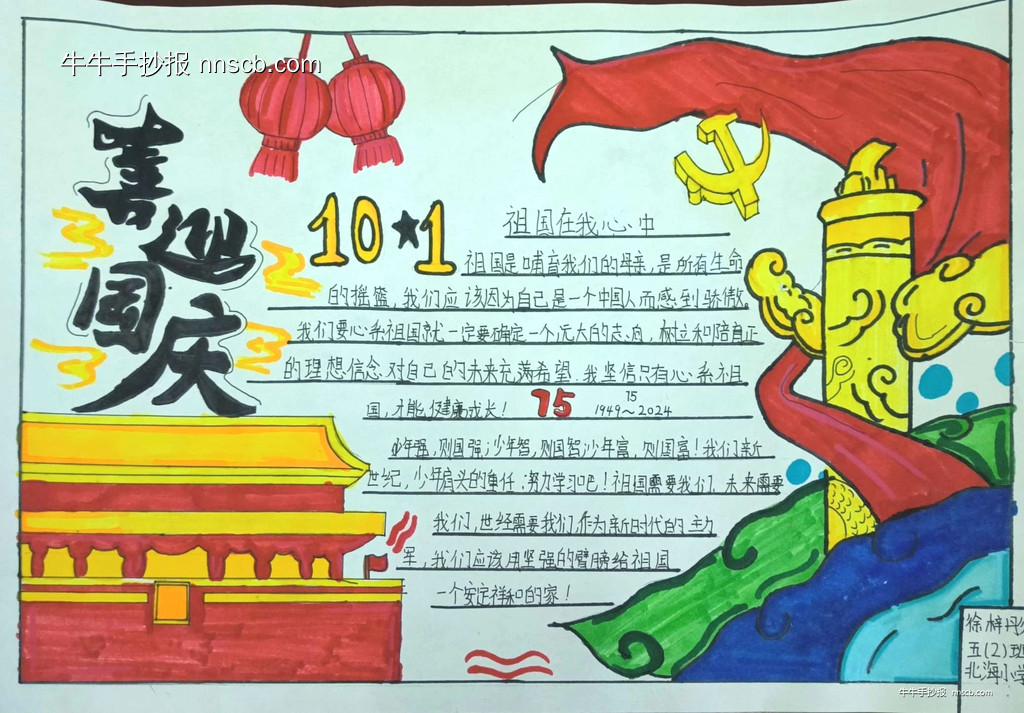 牛牛手抄报 nnscb.com
喜迎国庆
10★1
祖国在我心中
祖国是哺育我们的母亲,是所有生命
的摇篮,我们应该因为自己是一个中国人而感到骄傲。
我们要心系祖国就一定要确定一个远大的志向,树立和陪真正
的理想信念,对自己的未来充满希望.我坚信只有心系祖
国,才能健康成长!
75
75
1949~2024
少年强,则国强;少年智,则国智;少年富,则国富!我们新
世纪,少年肩负的重任:努力学习吧!祖国需要我们,未来需要
我们,世经需要我们,作为新时代的主力
军,我们应该用坚强的臂膀给祖国
一个安定祥和的家!
徐梓
五(2)班
北海小学
牛牛手抄报 nnscb.com